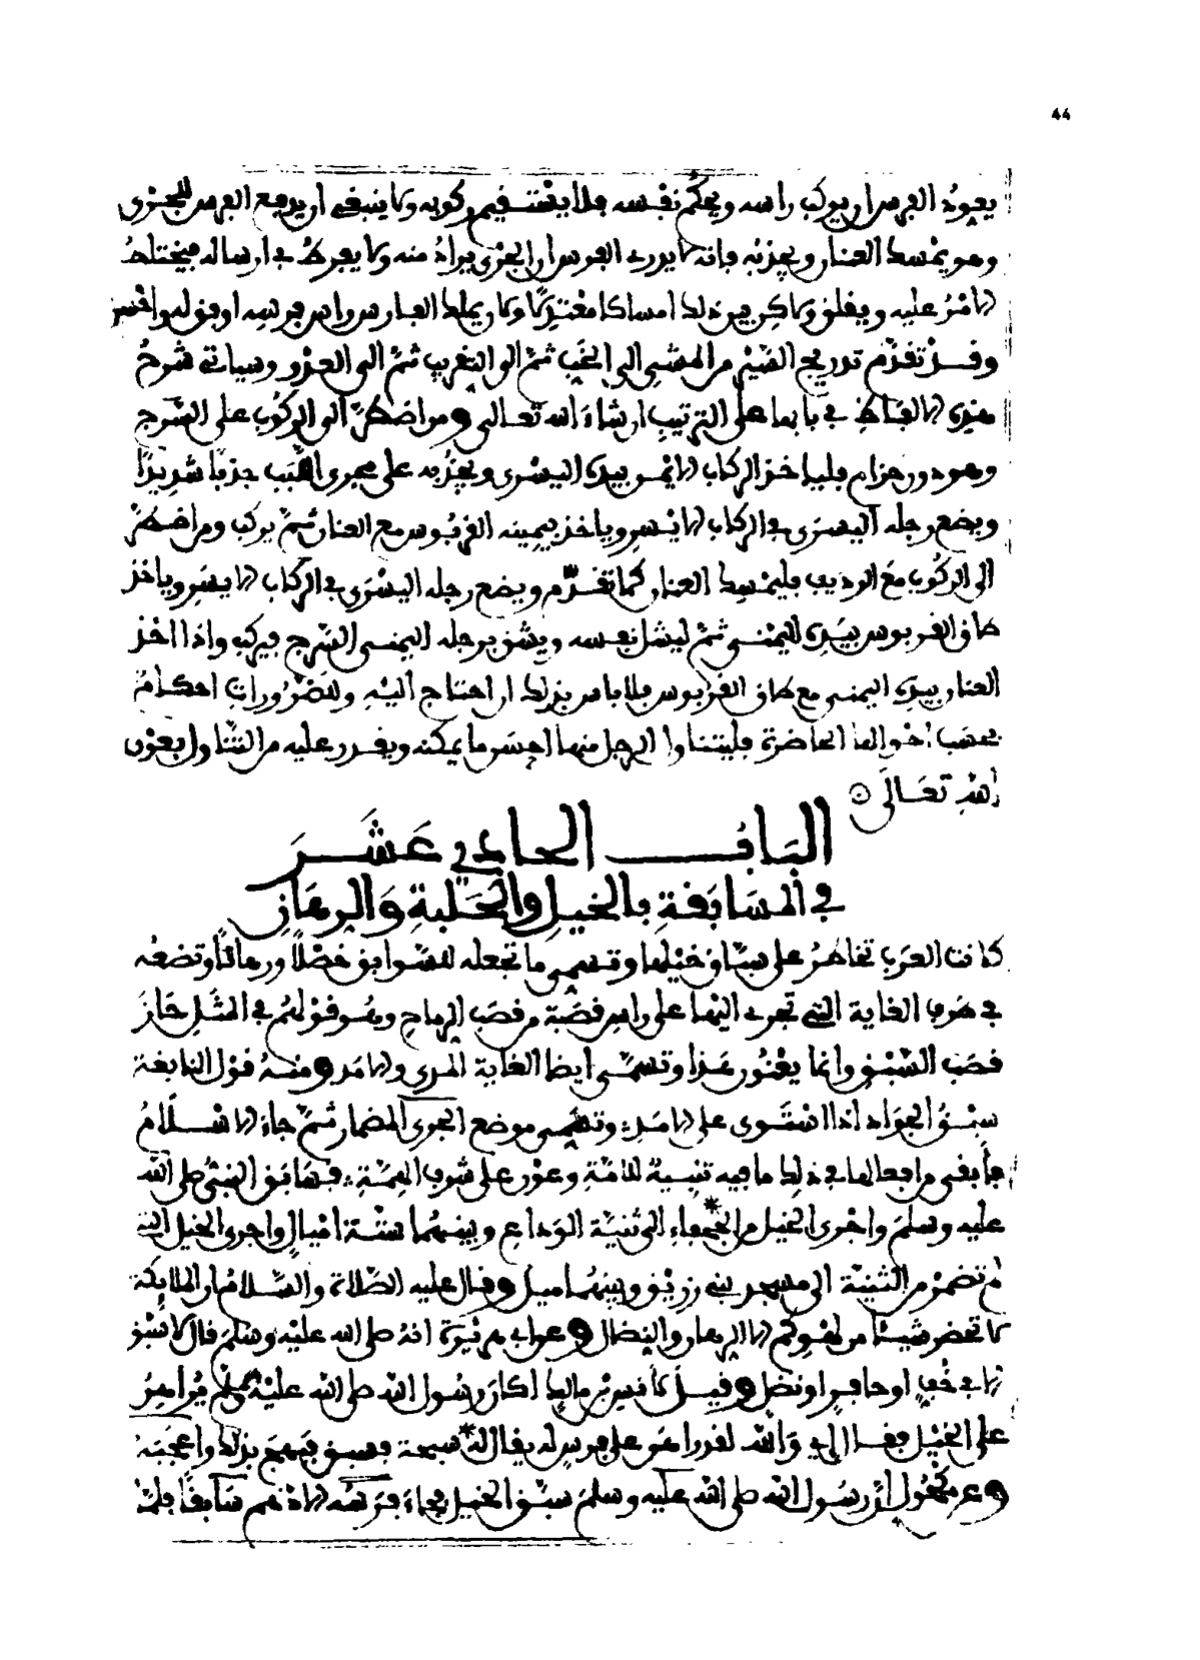 44
يعود الفرس ان يركب راسه ويحكم نفسه فلا يثبت فيه ركوبه ولا ينبغي ان يدفع الفرس للجري
وهو يمسك العنان ويجذبه فانه لا يدري الفرس ان الجري يراد منه ولا يفرط في ارساله فيختلط
الامر عليه ويقلق ولاكن بين ذلك امساكا معتدلا ولا يملك الفارس راس فرسه
وقد تقدم تدريج الشير من المشي الى الخبب ثم الى التقريب ثم الى العدو وسياتي شرح
هذه الالفاظ في بابها على الترتيب ان شاء الله تعالى ومن اضطر الى الركوب على السرج
وهو دون حزام فلياخذ الركاب الايمن بيده اليسرى ويجذبه على مجرى اللبب جذبا شديدا
ويضع رجله اليسرى في الركاب الايسر وياخذ بيمينه القربوس مع العنان ثم يركب ومن اضطر
الى الركوب مع الرديف فليمسك العنان كما تقدم ويضع رجله اليسرى في الركاب الايسر وياخذ
طاق القربوس بيده اليمنى ثم ليشل نفسه ويشق برجله اليمنى السرج فيركب واذا اخذ
العنان بيده اليمنى مع طاق القربوس فلا باس بذلك ان احتاج اليه وللضرورات احكام
بحسب احوالها الحاضرة فليتناول الرجل منها احسن ما يمكنه ويقدر عليه من التناول بعون
الله تعالى
الباب الحادي عشر
في المسابقة بالخيل والحلبة والرهان
كانت العرب تخاطر على سباق خيلها وتسمي ما تجعله للسوابق خصلا ورهانا وتضعه
في طرف الغاية التي تجري اليها على راس قصبة من قصب الرماح ومنه قولهم في المثل حاز
قصب السبق وانما يعنون هذا وتسمى ايضا الغاية المدى والامد ومنه قول النابغة
سبق الجواد اذا استوى على الامد وتسمى موضع الجري المضمار ثم جاء الاسلام
فابقى من افعالها في ذلك ما فيه تنبيه للامة وعون على شرف الهمة فسابق النبي صلى الله
عليه وسلم واجرى الخيل من الحفياء الى ثنية الوداع وبينهما ستة اميال واجرى الخيل التي
لم تضمر من الثنية الى مسجد بني زريق وبينهما ميل وقال عليه الصلاة والسلام ان الملايكة
لا تحضر شيئا من لهوكم الا الرهان والنضال وعن ابي هريرة انه صلى الله عليه وسلم قال لا سبق
الا في خف او حافر او نضل وقيل لانس بن مالك اكان رسول الله صلى الله عليه وسلم يراهن
على الخيل فقال اي والله لقد راهن على فرس له يقال له سبحة فسبق فبهج بذلك واعجبه
وعن مكحول ان رسول الله صلى الله عليه وسلم سبق الخيل فجاء فرسه الادهم سابقا فلما